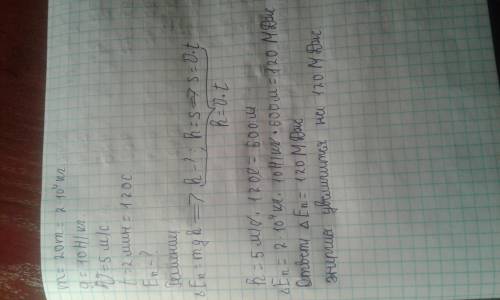 m = 20т = 2·10⁴ кг
g = 10 Н/кг
υ = 5 м/с
t = 2 мин = 120 с
Eп - ?
Решение
ΔEп = mgh => h - ? ; h = s => s = υ·t
h = υ·t
h = 5 м/с · 120с = 600 м
ΔEп = 2·10⁴ кг · 10 Н/кг · 600 м = 120 МДж
Ответ: ΔEп = 120 МДж
энергия увеличится на 120 МДж